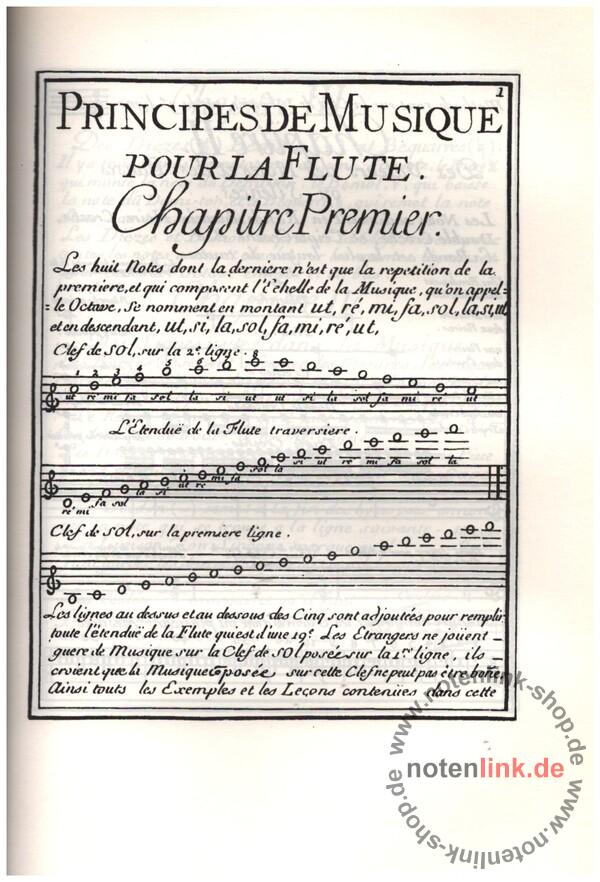 1
PRINCIPES DE MUSIQUE
POUR LA FLUTE.
Chapitre Premier.
Les huit Notes dont la derniere n'est que la repetition de la
premiere, et qui composent l'Echelle de la Musique, qu'on appel=
=le Octave, Se nomment en montant ut, ré, mi, fa, sol, la, si, ut
et en descendant, ut, si, la, sol, fa, mi, ré, ut,
Clef de SOL, sur la 2e ligne.
1 2 3 4 5 6 7 8
ut re mi fa sol la si ut ut si la sol fa mi re ut
L'Etenduë de la Flute traversiere.
ré mi fa sol la si ut re mi fa sol la si ut re mi fa sol la
Clef de SOL, sur la premiere ligne.
Les lignes au dessus et au dessous des Cinq sont adjoutées pour remplir
toute l'étenduë de la Flute qui est d'une 19e. Les Etrangers ne joüent
guere de Musique sur la Clef de SOL posée sur la 1re ligne, ils
croient que la Musique cõposée sur cette Clef ne peut pas étre boñe,
Ainsi touts les Exemples et les Leçons contenües dans cette
www.notenlink-shop.de www.notenlink-shop.de
notenlink.de